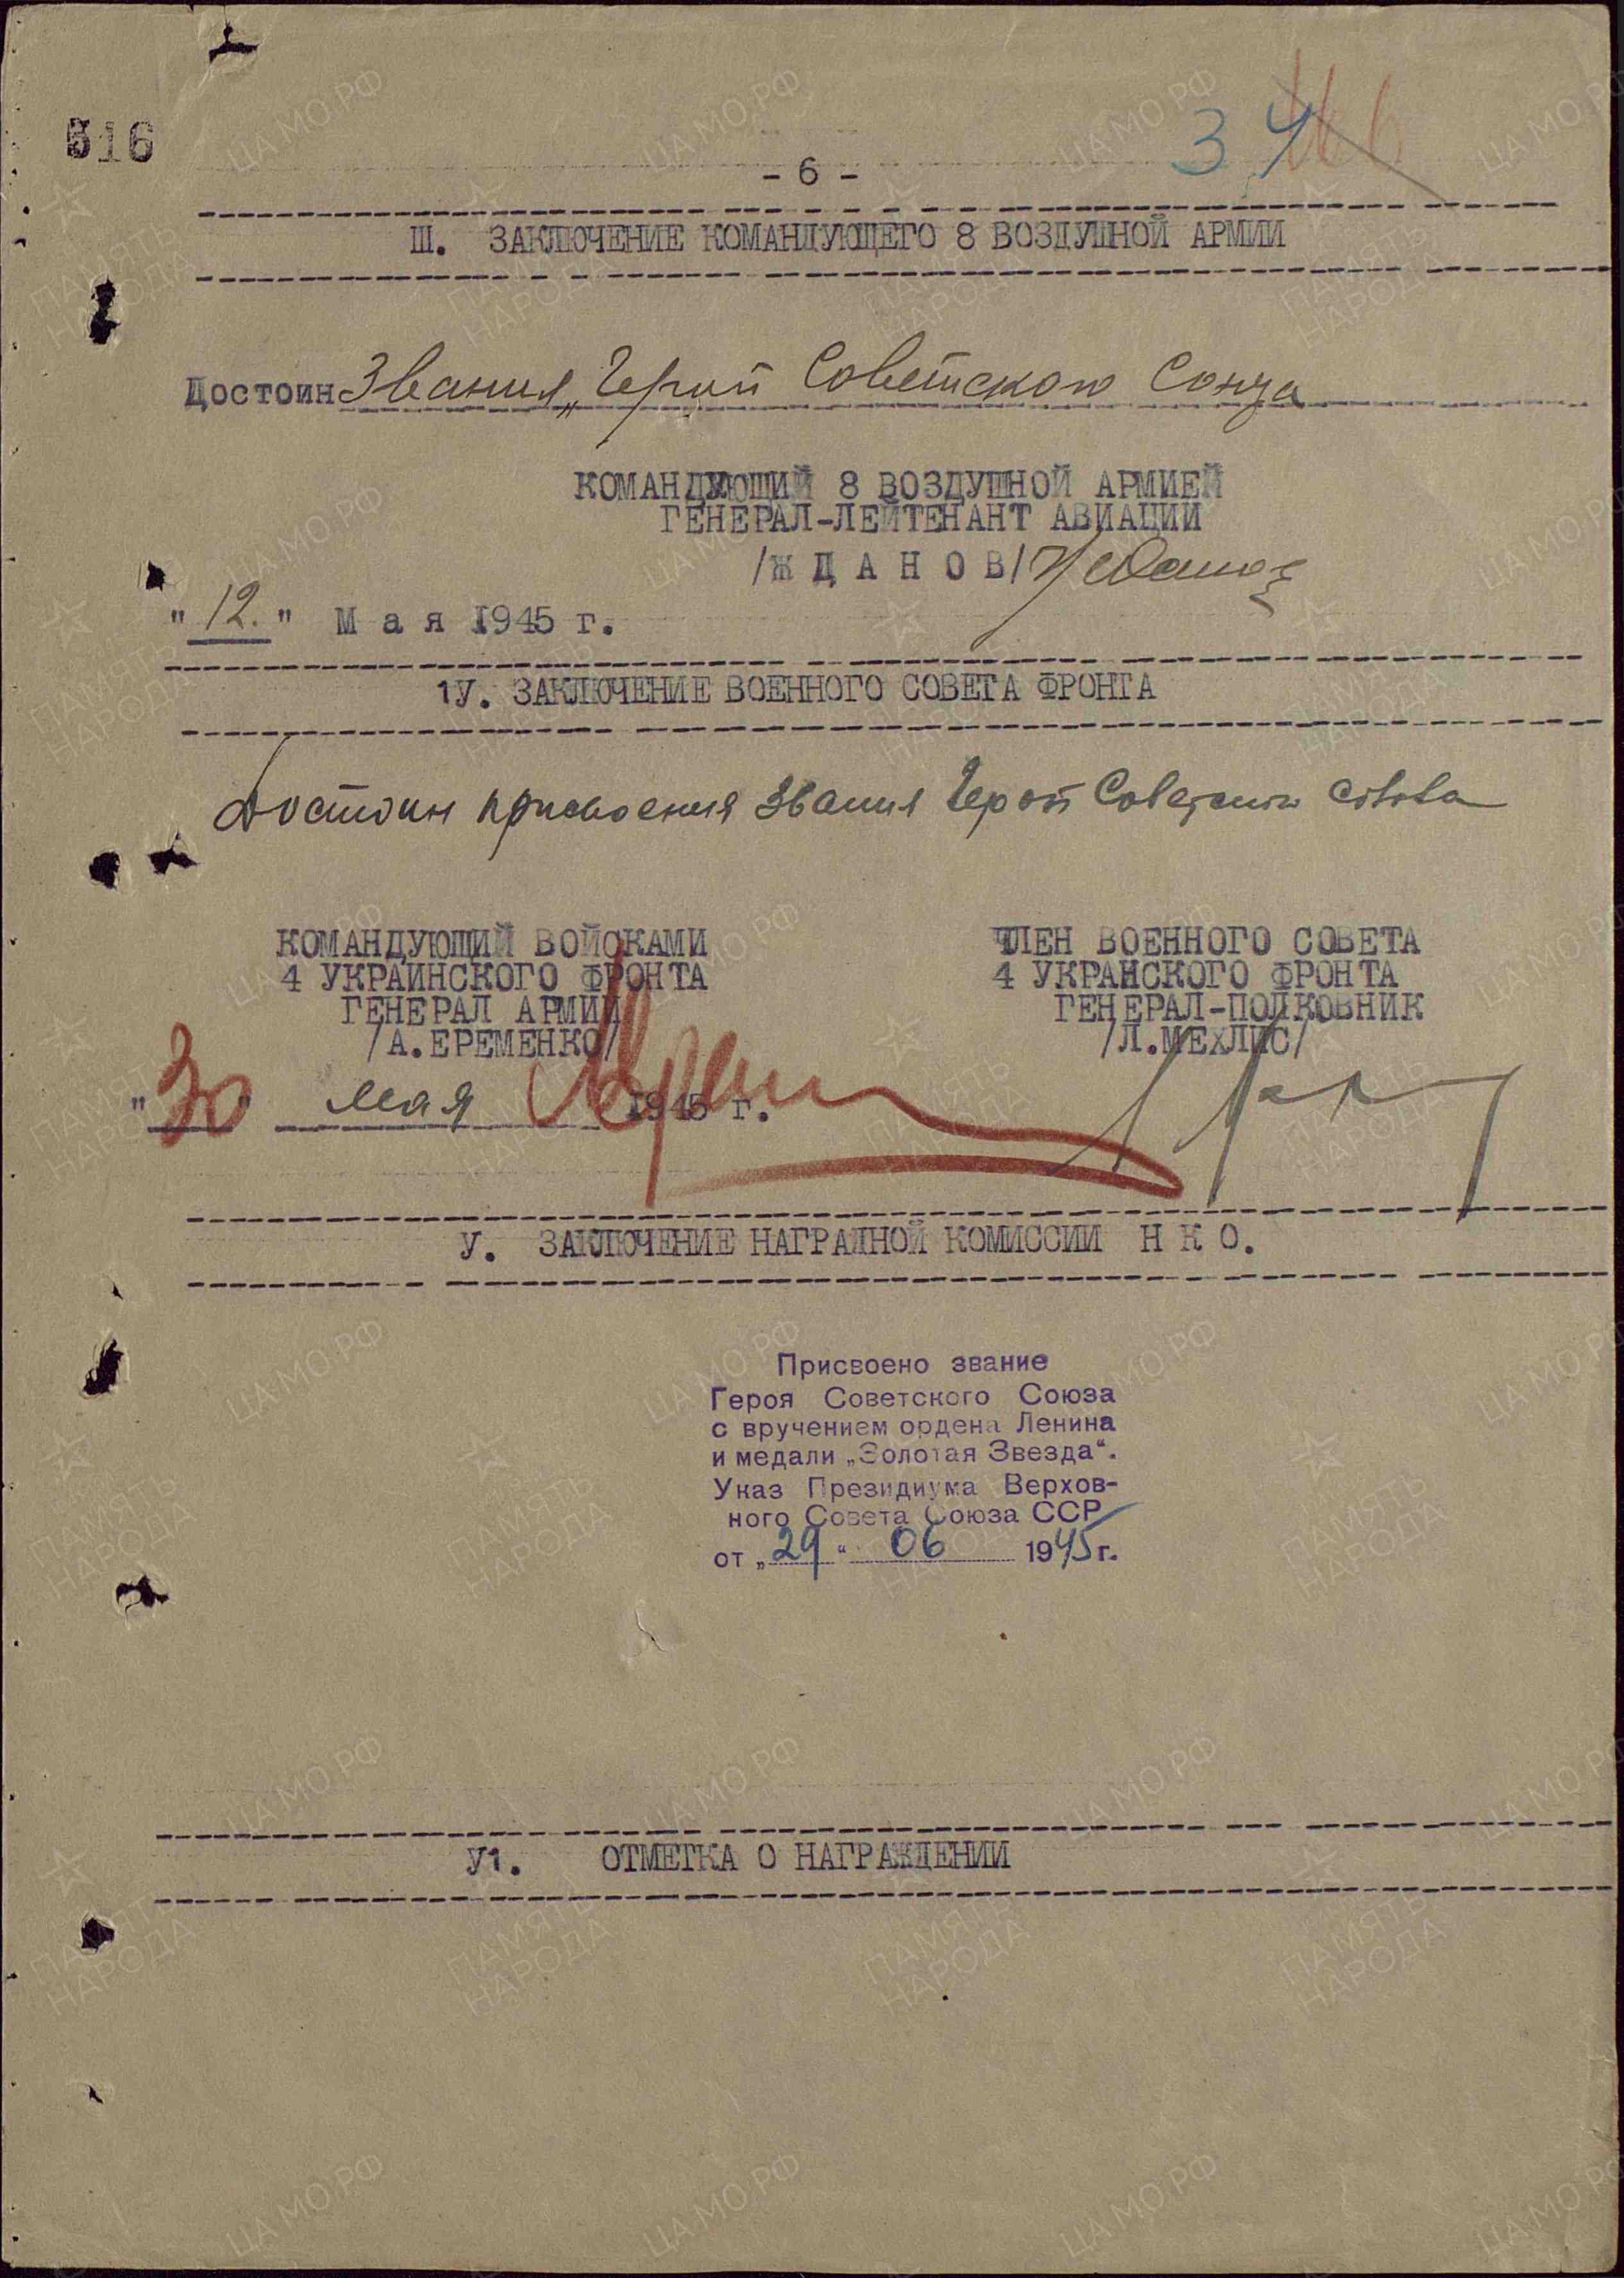 516
34
- 6 -
Ш. ЗАКЛЮЧЕНИЕ КОМАНДУЮЩЕГО 8 ВОЗДУШНОЙ АРМИИ
Достоин звания „Герой Советского Союза
КОМАНДУЮЩИЙ 8 ВОЗДУШНОЙ АРМИЕЙ
ГЕНЕРАЛ-ЛЕЙТЕНАНТ АВИАЦИИ
/Ж Д А Н О В/
"12." М а я 1945 г.
1У. ЗАКЛЮЧЕНИЕ ВОЕННОГО СОВЕТА ФРОНТА
Достоин присвоения звания Герой Советского Союза
КОМАНДУЮЩИЙ ВОЙСКАМИ
4 УКРАИНСКОГО ФРОНТА
ГЕНЕРАЛ АРМИИ
/А.ЕРЕМЕНКО/
ЧЛЕН ВОЕННОГО СОВЕТА
4 УКРАНСКОГО ФРОНТА
ГЕНЕРАЛ-ПОЛКОВНИК
/Л.МЕХЛИС/
"30" мая 1945 г.
У. ЗАКЛЮЧЕНИЕ НАГРАДНОЙ КОМИССИИ Н К О.
Присвоено звание
Героя Советского Союза
с вручением ордена Ленина
и медали „Золотая Звезда“.
Указ Президиума Верхов-
ного Совета Союза ССР
от „29“ 06 1945 г.
У1. ОТМЕТКА О НАГРАЖДЕНИИ
ЦА МО РФ
ПАМЯТЬ
НАРОДА